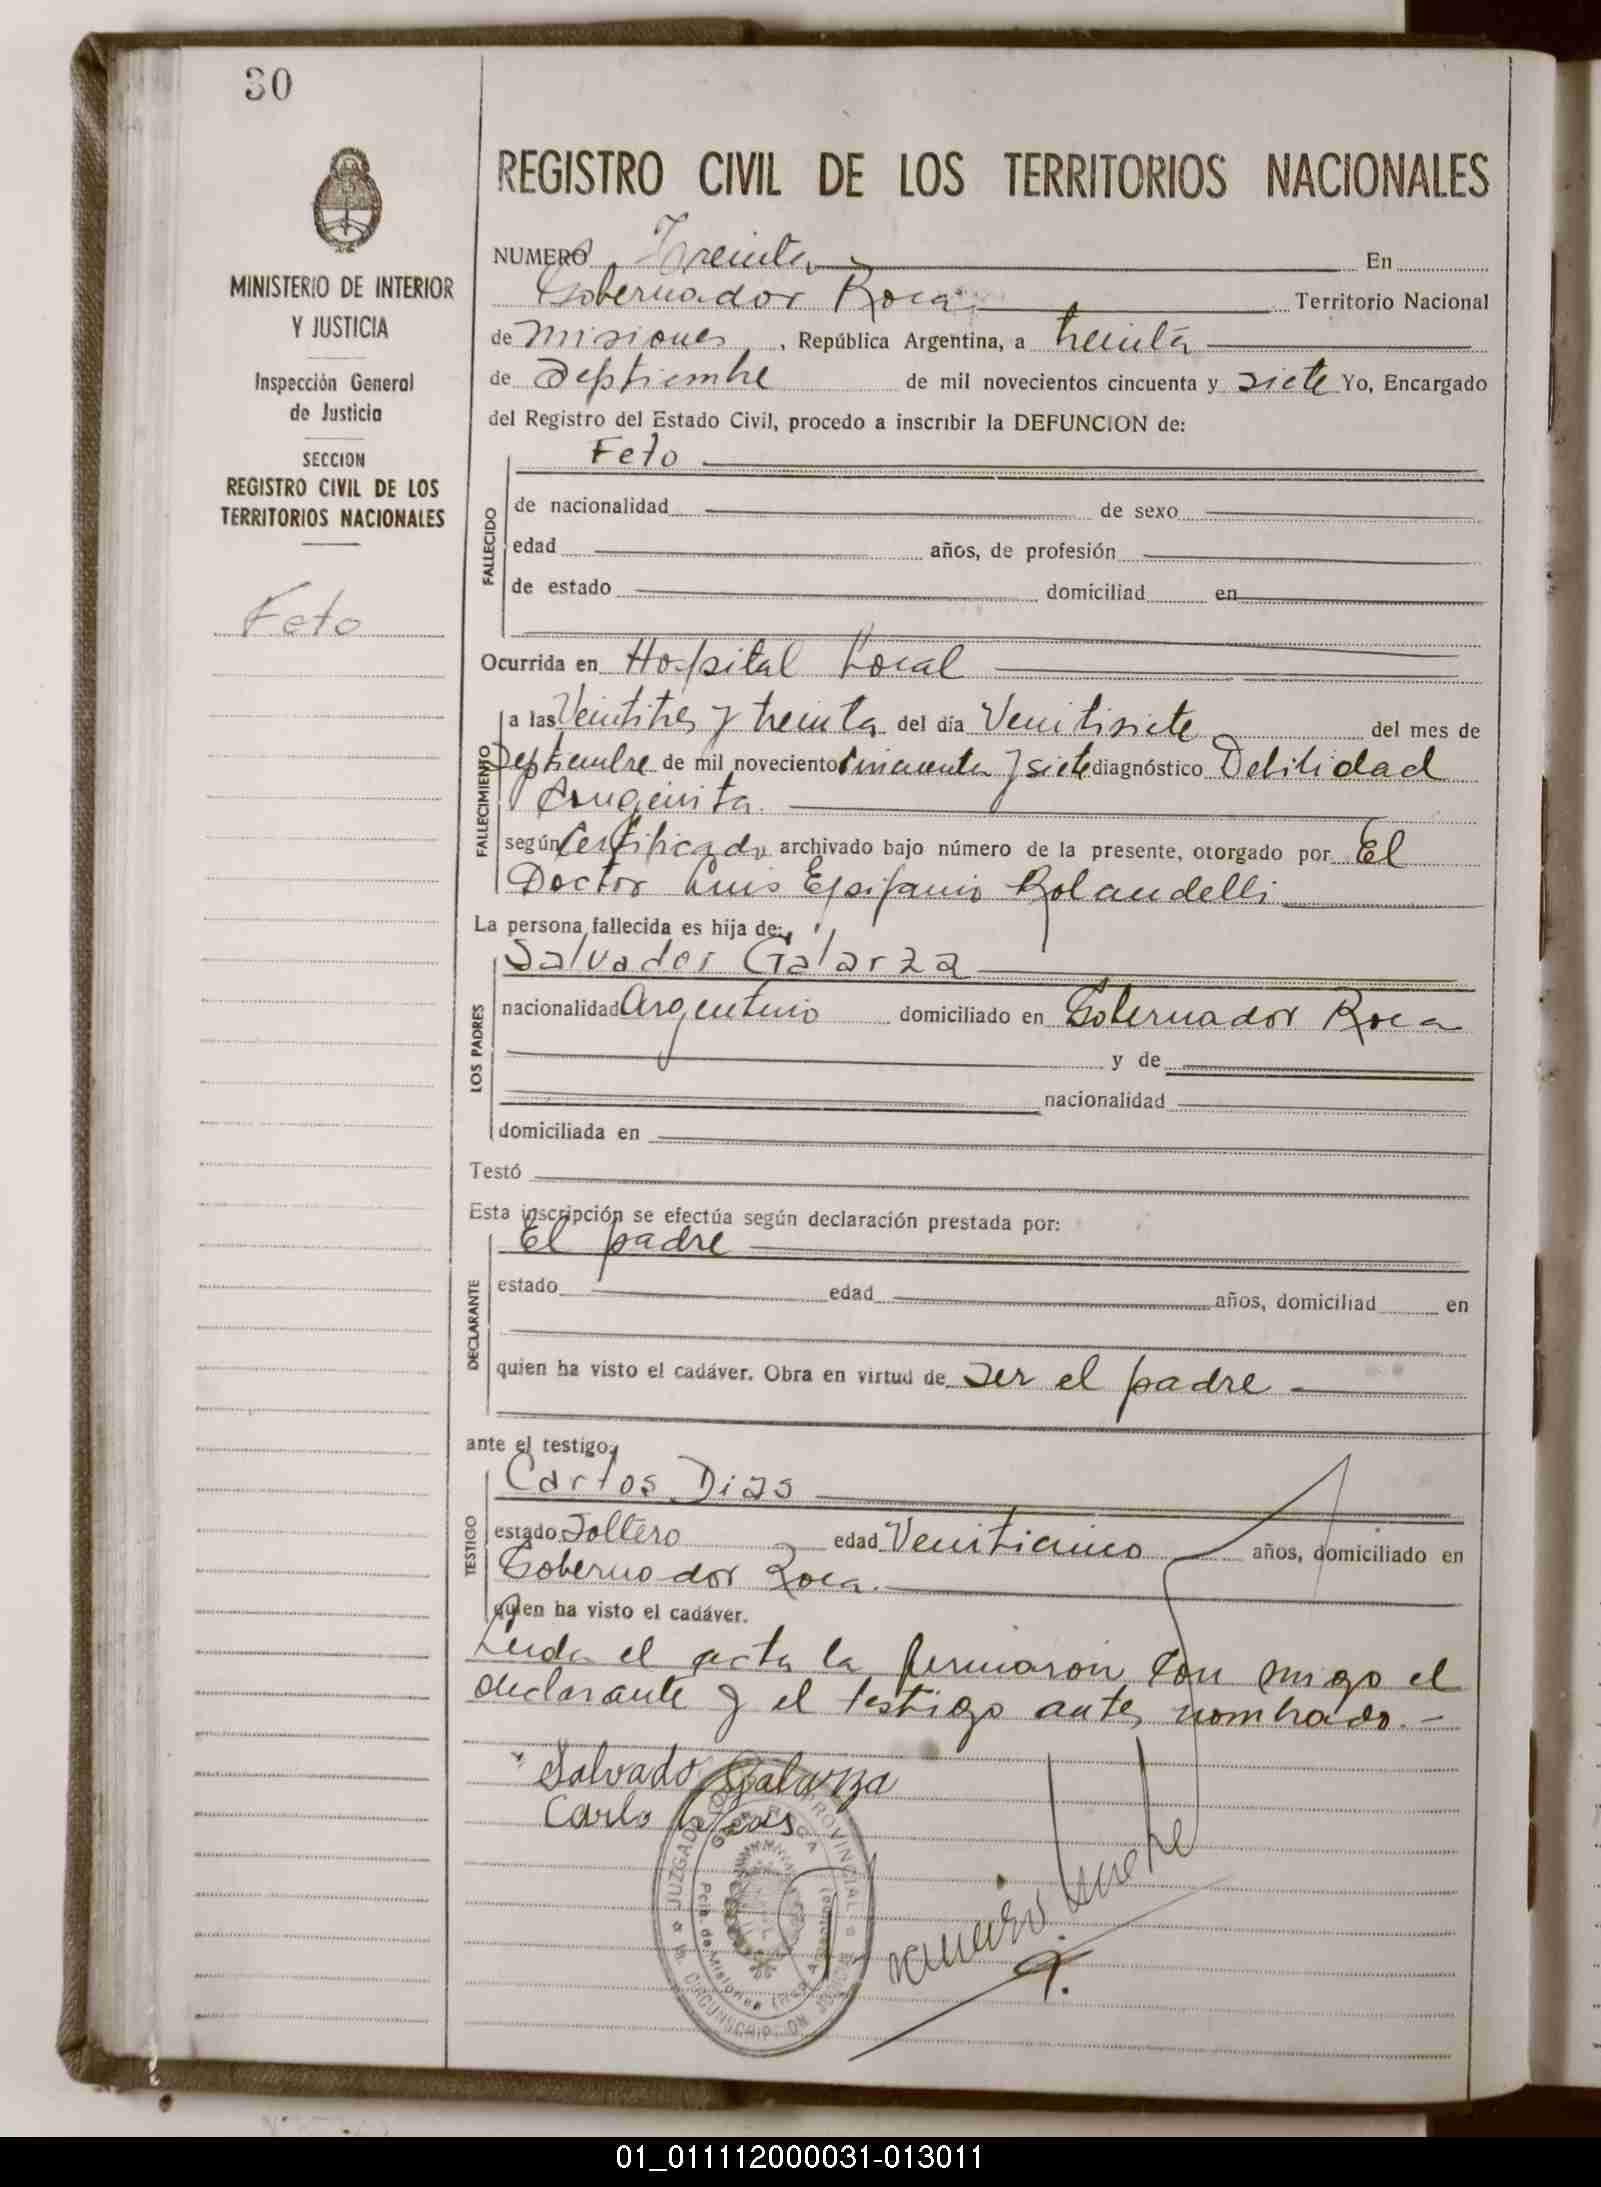 30
MINISTERIO DE INTERIOR
Y JUSTICIA
Inspección General
de Justicia
SECCION
REGISTRO CIVIL DE LOS
TERRITORIOS NACIONALES
Feto
REGISTRO CIVIL DE LOS TERRITORIOS NACIONALES
NUMERO Treinta En
Gobernador Roca Territorio Nacional
de Misiones, República Argentina, a treinta
de Septiembre de mil novecientos cincuenta y siete Yo, Encargado
del Registro del Estado Civil, procedo a inscribir la DEFUNCION de:
FALLECIDO
Feto
de nacionalidad de sexo
edad años, de profesión
de estado domiciliad en
Ocurrida en Hospital Local
FALLECIMIENTO
a las Veintitres y treinta del día Veintisiete del mes de
Septiembre de mil novecientos cincuenta y siete diagnóstico Debilidad
Congenita.
según Certificado archivado bajo número de la presente, otorgado por El
Doctor Luis Epifanio Rolandelli
La persona fallecida es hija de:
LOS PADRES
Salvador Galarza
nacionalidad Argentino domiciliado en Gobernador Roca
y de
nacionalidad
domiciliada en
Testó
Esta inscripción se efectúa según declaración prestada por:
DECLARANTE
El padre
estado edad años, domiciliad en
quien ha visto el cadáver. Obra en virtud de ser el padre
ante el testigo,
TESTIGO
Carlos Dias
estado Soltero edad Veinticinco años, domiciliado en
Gobernador Roca.
quien ha visto el cadáver.
Leida el acta la firmaron con migo el
declarante y el testigo antes nombrado.-
Salvado Galarza
Carlo Dias
JUZGADO PROVINCIAL
GOB. ROCA
Pcia. de Misiones (Rep. Argentina)
CIRCUNSCRIPCION JUDICIAL
01_011112000031-013011